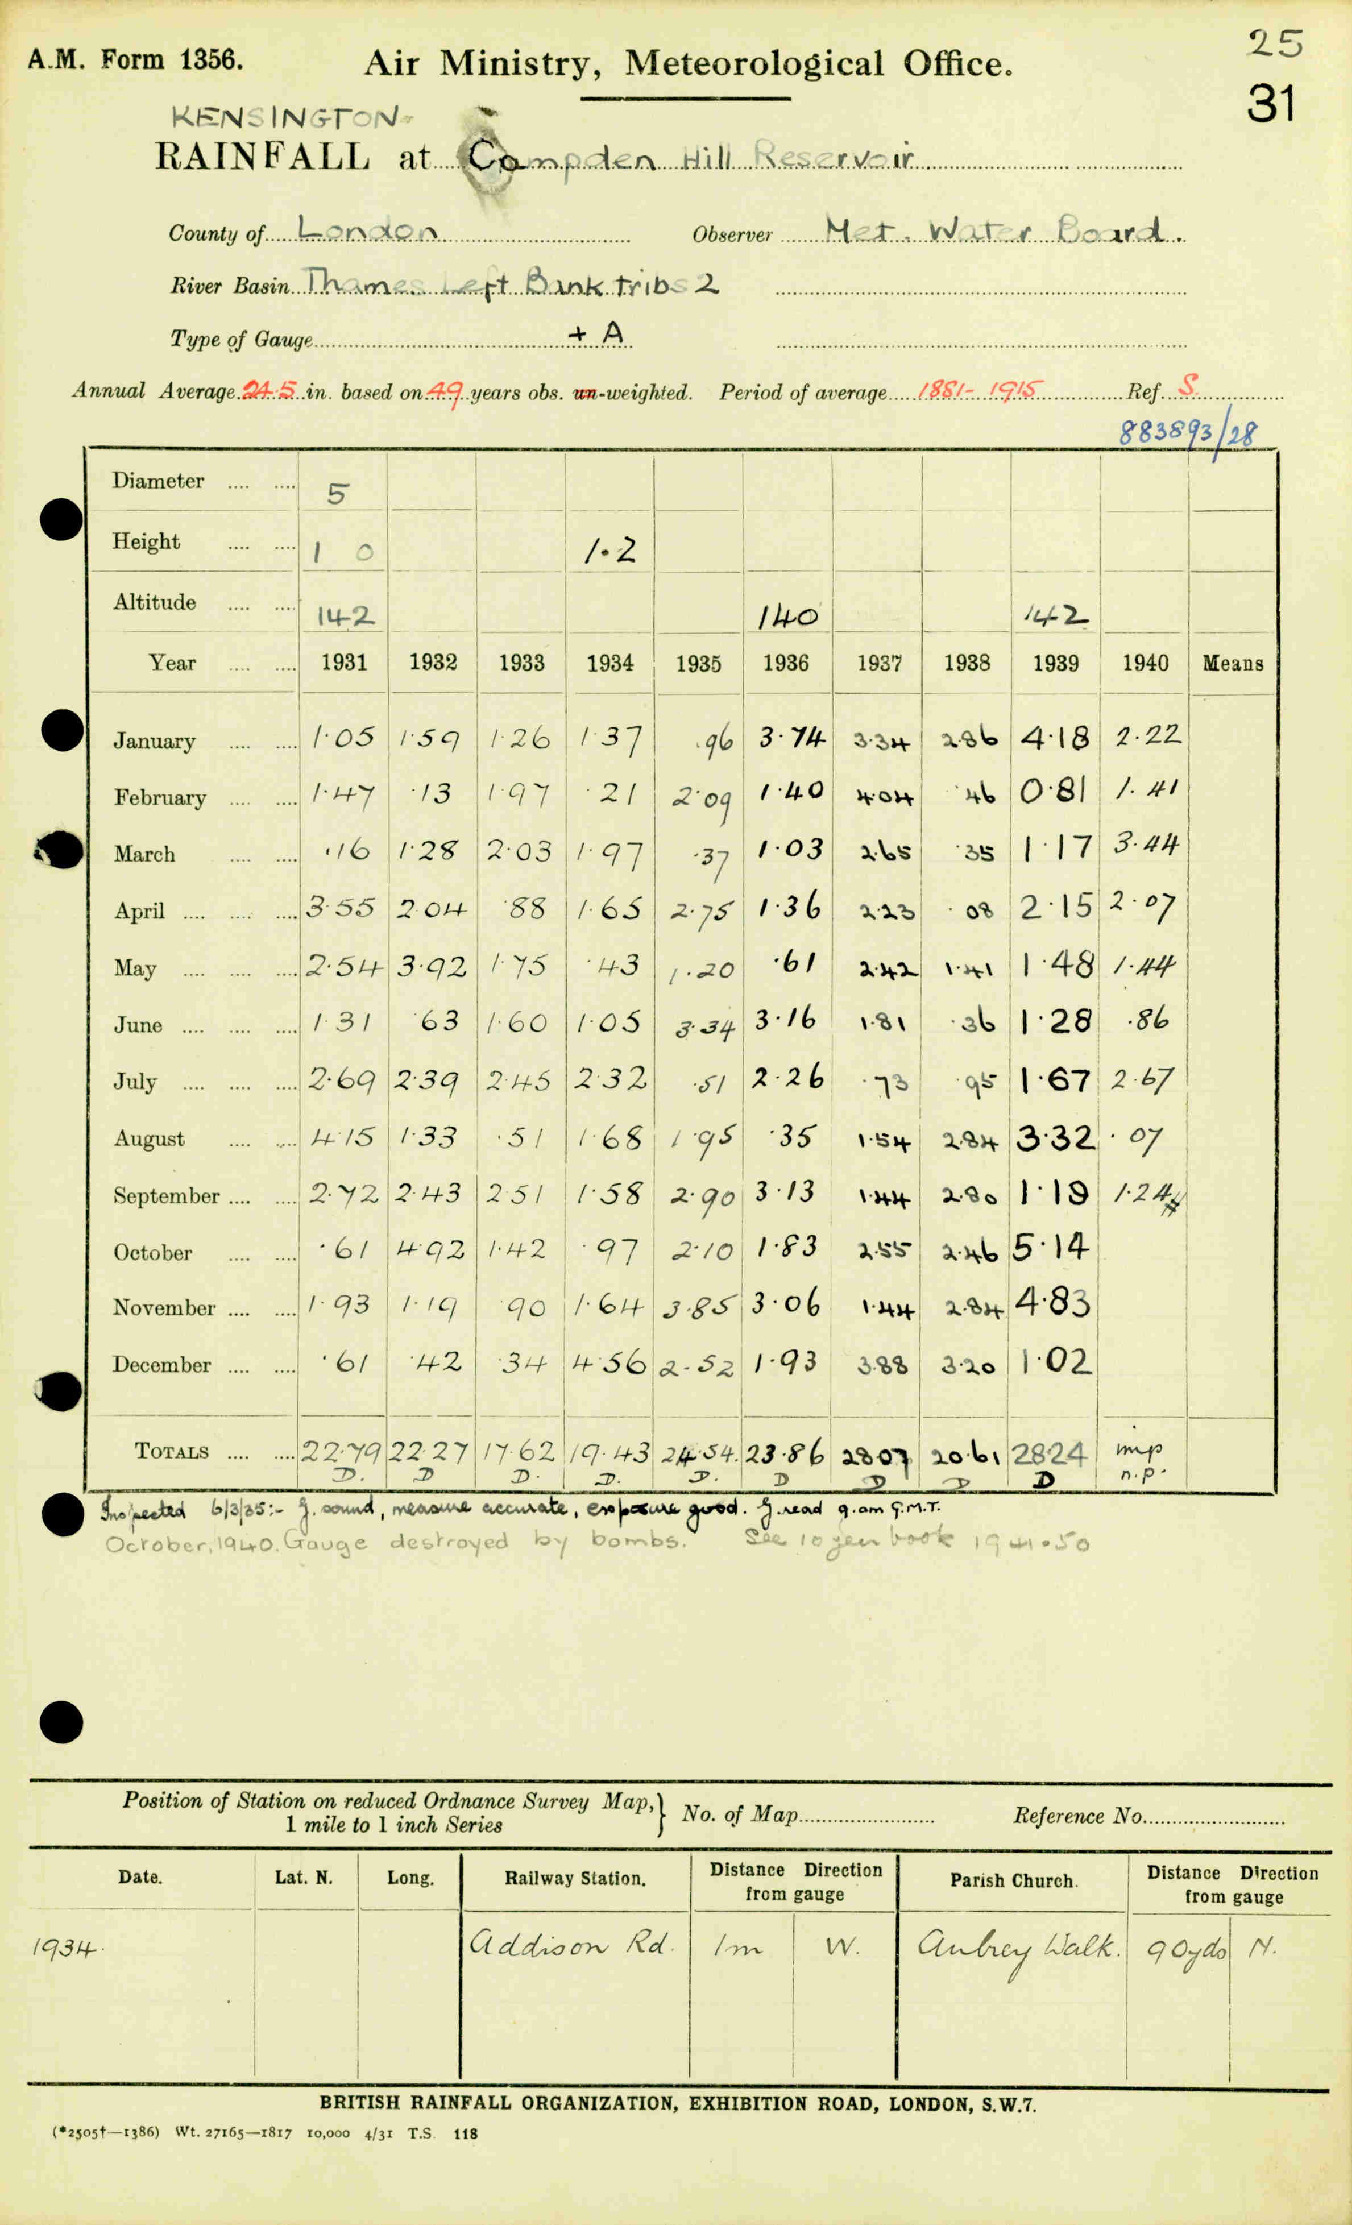 A.M. Form 1356. Air Ministry, Meteorological Office. 25
31
KENSINGTON
RAINFALL at Campden Hill Reservoir
County of London Observer Met. Water Board.
River Basin Thames Left Bank tribs 2
Type of Gauge + A
Annual Average 24.5 in. based on 49 years obs. un-weighted. Period of average 1881-1915 Ref. S.
883893/28
Diameter 5
Height 1 0 1.2
Altitude 142 140 142
Year 1931 1932 1933 1934 1935 1936 1937 1938 1939 1940 Means
January 1.05 1.59 1.26 1.37 .96 3.74 3.34 2.86 4.18 2.22
February 1.47 .13 1.97 .21 2.09 1.40 4.04 .46 0.81 1.41
March .16 1.28 2.03 1.97 .37 1.03 2.65 .35 1.17 3.44
April 3.55 2.04 .88 1.65 2.75 1.36 2.23 .08 2.15 2.07
May 2.54 3.92 1.75 .43 1.20 .61 2.42 1.41 1.48 1.44
June 1.31 .63 1.60 1.05 3.34 3.16 1.81 .36 1.28 .86
July 2.69 2.39 2.45 2.32 .51 2.26 .73 .95 1.67 2.67
August 4.15 1.33 .51 1.68 1.95 .35 1.54 2.84 3.32 .07
September 2.72 2.43 2.51 1.58 2.90 3.13 1.44 2.80 1.19 1.24
October .61 4.92 1.42 .97 2.10 1.83 2.55 2.46 5.14
November 1.93 1.19 .90 1.64 3.85 3.06 1.44 2.84 4.83
December .61 .42 .34 4.56 2.52 1.93 3.88 3.20 1.02
TOTALS 22.79 22.27 17.62 19.43 24.54 23.86 28.07 20.61 28.24 imp
D. D D. D. D. D D D D n.p.
Inspected 6/3/35:- G. sound, measure accurate, exposure good. G. read 9.am G.M.T.
October, 1940. Gauge destroyed by bombs. See 10 year book 1941.50
Position of Station on reduced Ordnance Survey Map, } No. of Map Reference No.
1 mile to 1 inch Series
Date. Lat. N. Long. Railway Station. Distance Direction from gauge Parish Church. Distance Direction from gauge
1934. Addison Rd. 1m W. Aubrey Walk. 90yds N.
BRITISH RAINFALL ORGANIZATION, EXHIBITION ROAD, LONDON, S.W.7.
(*2505†—1386) Wt. 27165—1817 10,000 4/31 T.S. 118